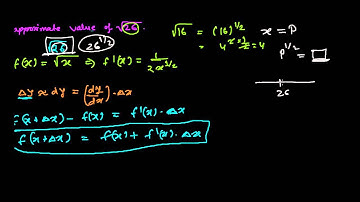 approximate value of √26.
26 26^{1/2}
f(x) = √x ⇒ f'(x) = \frac{1}{2x^{1/2}}
Δy ≈ dy = (\frac{dy}{dx}) · Δx
f(x+Δx) - f(x) = f'(x) · Δx
f(x+Δx) = f(x) + f'(x) · Δx
√16 = (16)^{1/2}
= 4^{2×\frac{1}{2}} = 4
x = P
P^{1/2} = □
26